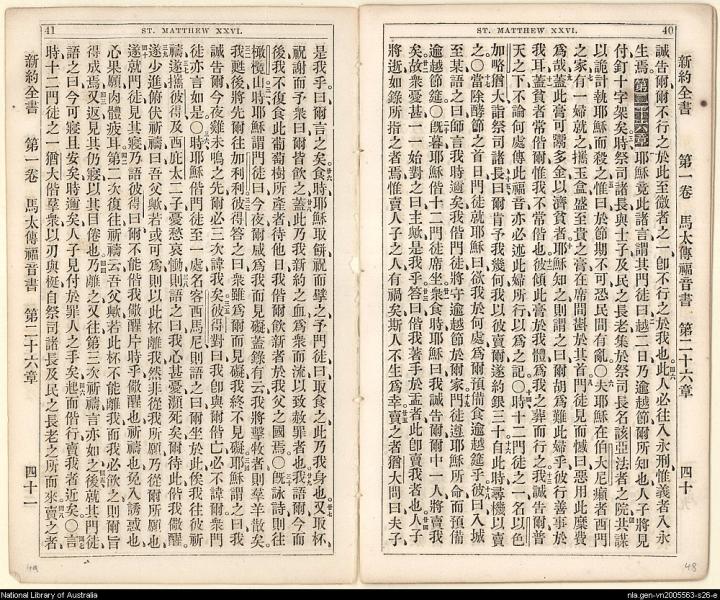 40
ST. MATTHEW XXVI.
新約全書 第一卷 馬太傳福音書 第二十六章 四十
誠告爾爾不行之於此至微者之一卽不行之於我也此人必往入永刑惟義者入永
生焉第二十六章耶穌竟此諸言謂其門徒曰越二日乃逾越節爾所知也人子將見
付釘十字架矣時祭司諸長與士子及民之長老集於祭司長名該亞法者之院共謀
以詭計執耶穌而殺之惟曰於節期不可恐民間有亂○夫耶穌在伯大尼癩者西門
之家有一婦就之攜玉盒盛至貴之膏在席間斟於其首門徒見而憾曰惡用此糜費
爲哉蓋此膏可鬻多金以濟貧者耶穌知之則謂之曰爾胡爲難此婦乎彼行善事於
我耳蓋貧者常偕爾惟我不常偕也彼傾此膏於我體爲我之葬而行之我誠告爾普
天之下不論何處傳此福音亦必述此婦所行以爲之記○時十二門徒之一名以色
加畧猶大詣祭司諸長曰爾肯予我幾何我以彼賣爾遂約銀三十自此時尋機以賣
之○當除酵節之首日門徒就耶穌曰欲我於何處爲爾預備食逾越筵乎彼曰入城
至某語之曰師言我時邇矣我偕門徒將守逾越節於爾家門徒遵耶穌所命而預備
逾越節筵○旣暮耶穌偕十二門徒席坐衆食時耶穌曰我誠告爾爾中一人將賣我
矣故衆憂甚一一始對之曰主歟是我乎答曰偕我著手於盂者此卽賣我者也人子
將逝如錄所指之者焉惟賣人子之人有禍矣斯人不生爲幸賣之者猶大問曰夫子
48
41
ST. MATTHEW XXVI.
是我乎曰爾言之矣食時耶穌取餅祝而擘之予門徒曰取食之此乃我身也又取杯
祝謝而予衆曰爾皆飲之蓋此乃我新約之血爲衆而流以致赦罪者也我語爾今而
後我不復食此葡萄樹所產者待他日我偕爾飲新者於我父之國焉○旣詠詩則往
橄欖山時耶穌謂門徒曰今夜爾咸爲我而見礙蓋錄有云我將擊牧者則羣羊散矣
我甦後將先爾往加利利彼得答之曰衆雖爲爾而見礙我終不見礙耶穌謂之曰我
誠告爾今夜雞未鳴之先爾必三次諱我矣彼得對曰我卽與爾偕亡必不諱爾衆門
徒亦言如是○時耶穌偕門徒至一處名客西馬尼則語之曰爾坐於此俟我往彼祈
禱遂攜彼得及西庇太二子憂愁哀慟則語之曰我心甚憂瀕死矣爾待此偕我儆醒
遂少進俯伏祈禱曰吾父歟若或可爲則以此杯離我然非從我所願乃從爾所願也
遂就門徒見其寢乃語彼得曰爾不能偕我儆醒片時乎儆醒也祈禱也免入誘惑也
心果願肉體疲耳第二次復往祈禱云吾父歟若此杯不能離我而我必飲之則爾旨
得成焉又返見其仍寢以其目倦也乃離之又往第三次祈禱言亦如之後就其門徒
語之曰今可寢且安矣時邇矣人子見付於罪人之手矣起而偕行賣我者近矣○言
時十二門徒之一猶大偕羣衆以刃與梃自祭司諸長及民之長老之所而來賣之者
新約全書 第一卷 馬太傳福音書 第二十六章 四十一
National Library of Australia
nla.gen-vn2005563-s26-e